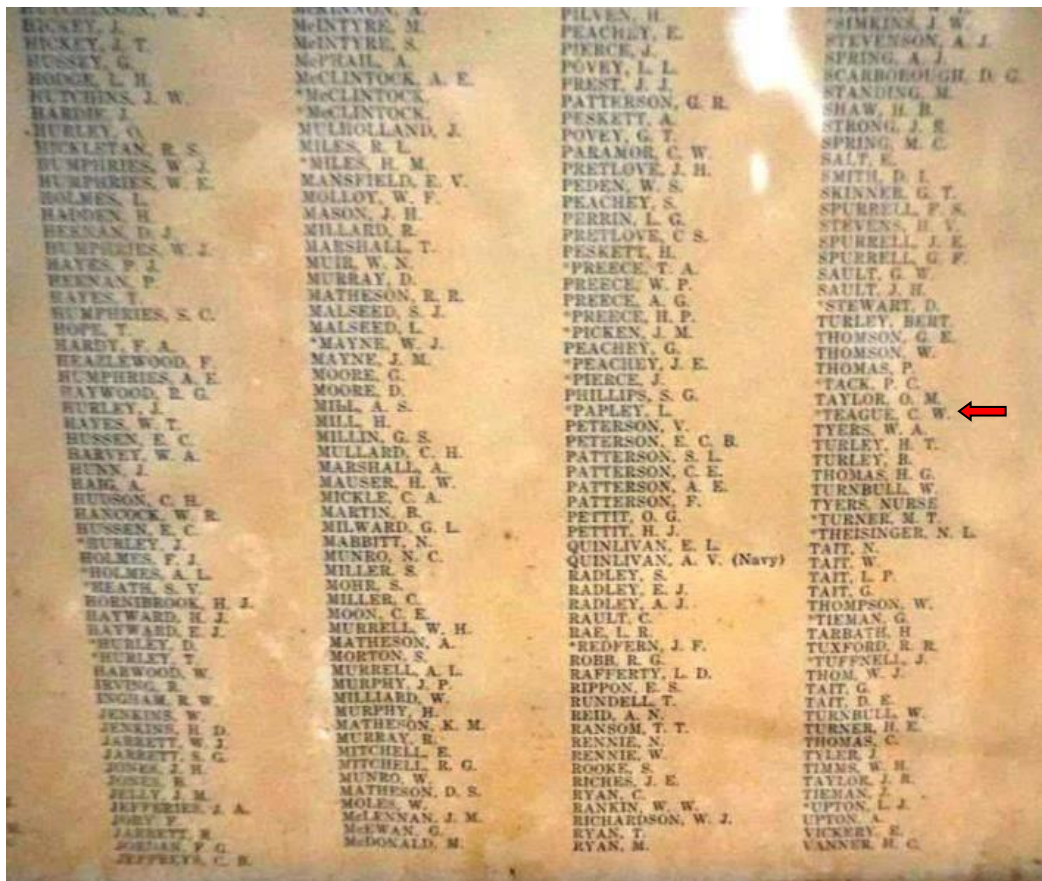 HUTCHINSON, W. J.
HICKEY, J.
HICKEY, J. T.
HUSSEY, G.
HODGE, L. H.
HUTCHINS, J. W.
HARDIE, J.
HURLEY, O.
HICKLETAN, R. S.
HUMPHRIES, W. J.
HUMPHRIES, W. E.
HOLMES, L.
HADDEN, H.
HEENAN, D. J.
HUMPHRIES, W. J.
HAYES, P. J.
HEENAN, P.
HAYES, T.
HUMPHRIES, S. C.
HOPE, T.
HARDY, F. A.
HEAZLEWOOD, F.
HUMPHRIES, A. E.
HAYWOOD, R. G.
HURLEY, J.
HAYES, W. T.
HUSSEN, E. C.
HARVEY, W. A.
HUNN, J.
HAIG, A.
HUDSON, C. H.
HANCOCK, W. R.
HUSSEN, E. C.
*HURLEY, J.
HOLMES, F. J.
*HOLMES, A. L.
*HEATH, S. V.
HORNIBROOK, H. J.
HAYWARD, H. J.
HAYWARD, E. J.
*HURLEY, D.
*HURLEY, T.
HARWOOD, W.
IRVING, R.
INGHAM, R. W.
JENKINS, W.
JENKINS, H. D.
JARRETT, W. J.
JARRETT, S. G.
JONES, J. H.
JONES, R.
JELLY, J. M.
JEFFERIES, J. A.
JORY, F.
JARRETT, R.
JORDAN, F. G.
JEFFREYS, C. B.
McKINNON, A.
McINTYRE, M.
McINTYRE, S.
McPHAIL, A.
McCLINTOCK, A. E.
*McCLINTOCK,
*McCLINTOCK,
MULHOLLAND, J.
MILES, R. L.
*MILES, H. M.
MANSFIELD, E. V.
MOLLOY, W. F.
MASON, J. H.
MILLARD, R.
MARSHALL, T.
MUIR, W. N.
MURRAY, D.
MATHESON, R. R.
MALSEED, S. J.
MALSEED, L.
*MAYNE, W. J.
MAYNE, J. M.
MOORE, G.
MOORE, D.
MILL, A. S.
MILL, H.
MILLIN, G. S.
MULLARD, C. H.
MARSHALL, A.
MAUSER, H. W.
MICKLE, C. A.
MARTIN, B.
MILWARD, G. L.
MABBITT, N.
MUNRO, N. C.
MILLER, S.
MOHR, S.
MILLER, C.
MOON, C. E.
MURRELL, W. H.
MATHESON, A.
MORTON, S.
MURRELL, A. L.
MURPHY, J. P.
MILLIARD, W.
MURPHY, H.
MATHESON, K. M.
MURRAY, R.
MITCHELL, E.
MITCHELL, R. G.
MUNRO, W.
MATHESON, D. S.
MOLES, W.
McLENNAN, J. M.
McEWAN, G.
McDONALD, M.
PILVEN, H.
PEACHEY, E.
PIERCE, J.
POVEY, L. L.
PREST, J. J.
PATTERSON, G. R.
PESKETT, A.
POVEY, G. T.
PARAMOR, C. W.
PRETLOVE, J. H.
PEDEN, W. S.
PEACHEY, S.
PERRIN, L. G.
PRETLOVE, C S.
PESKETT, H.
*PREECE, T. A.
PREECE, W. P.
PREECE, A. G.
*PREECE, H. P.
*PICKEN, J. M.
PEACHEY, G.
*PEACHEY, J. E.
*PIERCE, J.
PHILLIPS, S. G.
*PAPLEY, L.
PETERSON, V.
PETERSON, E. C. B.
PATTERSON, S. L.
PATTERSON, C. E.
PATTERSON, A. E.
PATTERSON, F.
PETTIT, O. G.
PETTIT, H. J.
QUINLIVAN, E. L.
QUINLIVAN, A. V. (Navy)
RADLEY, S.
RADLEY, E. J.
RADLEY, A. J.
RAULT, C.
RAE, L. R.
*REDFERN, J. F.
ROBB, R. G.
RAFFERTY, L. D.
RIPPON, E. S.
RUNDELL, T.
REID, A. N.
RANSOM, T. T.
RENNIE, N.
RENNIE, W.
ROOKE, S.
RICHES, J. E.
RYAN, C.
RANKIN, W. W.
RICHARDSON, W. J.
RYAN, T.
RYAN, M.
*SIMKINS, J. W.
STEVENSON, A. J.
SPRING, A. J.
SCARBOROUGH, D. G.
STANDING, M.
SHAW, H. B.
STRONG, J. R.
SPRING, M. C.
SALT, E.
SMITH, D. L.
SKINNER, G. T.
SPURRELL, F. S.
STEVENS, H. V.
SPURRELL, J. E.
SPURRELL, G. F.
SAULT, G. W.
SAULT, J. H.
*STEWART, D.
TURLEY, BERT
THOMSON, G. E.
THOMSON, W.
THOMAS, P.
*TACK, P. C.
TAYLOR, O. M.
*TEAGUE, C. W.
TYERS, W. A.
TURLEY, H. T.
TURLEY, B.
THOMAS, H. G.
TURNBULL, W.
TYERS, NURSE
*TURNER, M. T.
*THEISINGER, N. L.
TAIT, N.
TAIT, W.
TAIT, L. P.
TAIT, G.
THOMPSON, W.
*TIEMAN, G.
TARBATH, H
TUXFORD, R. R.
*TUFFNELL, J.
THOM, W. J.
TAIT, G.
TAIT, D. E.
TURNBULL, W.
TURNER, H. E.
THOMAS, C.
TYLER, J.
TIMMS, W. H.
TAYLOR, J. R.
TIEMAN, J.
*UPTON, L. J.
UPTON, A.
VICKERY, E.
VANNER, H. C.